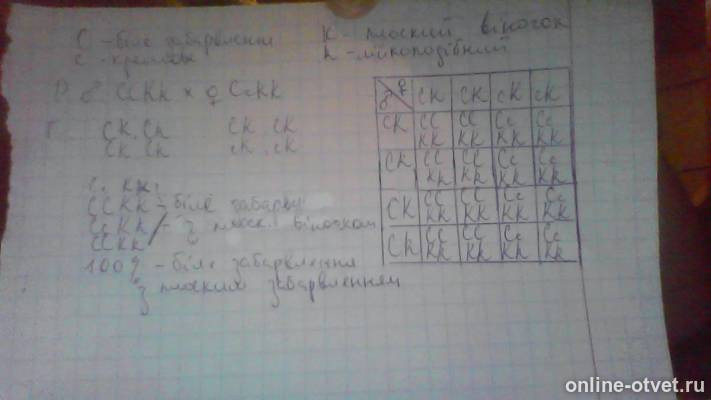 C - біле забарвлення K - плоский віночок
c - кремове k - лійкоподібний
P: ♂ CCKk x ♀ CcKK
CK, Ck CK, CK
CK, Ck cK, cK
♂ ♀ CK CK cK cK
CK CC KK CC KK Cc KK Cc KK
Ck CC Kk CC Kk Cc Kk Cc Kk
CK CC KK CC KK Cc KK Cc KK
Ck CC Kk CC Kk Cc Kk Cc Kk
CCKK - біле забарв
- з плоск. віночком
100% - біле забарвлення
з плоским забарвленням
online-otvet.ru